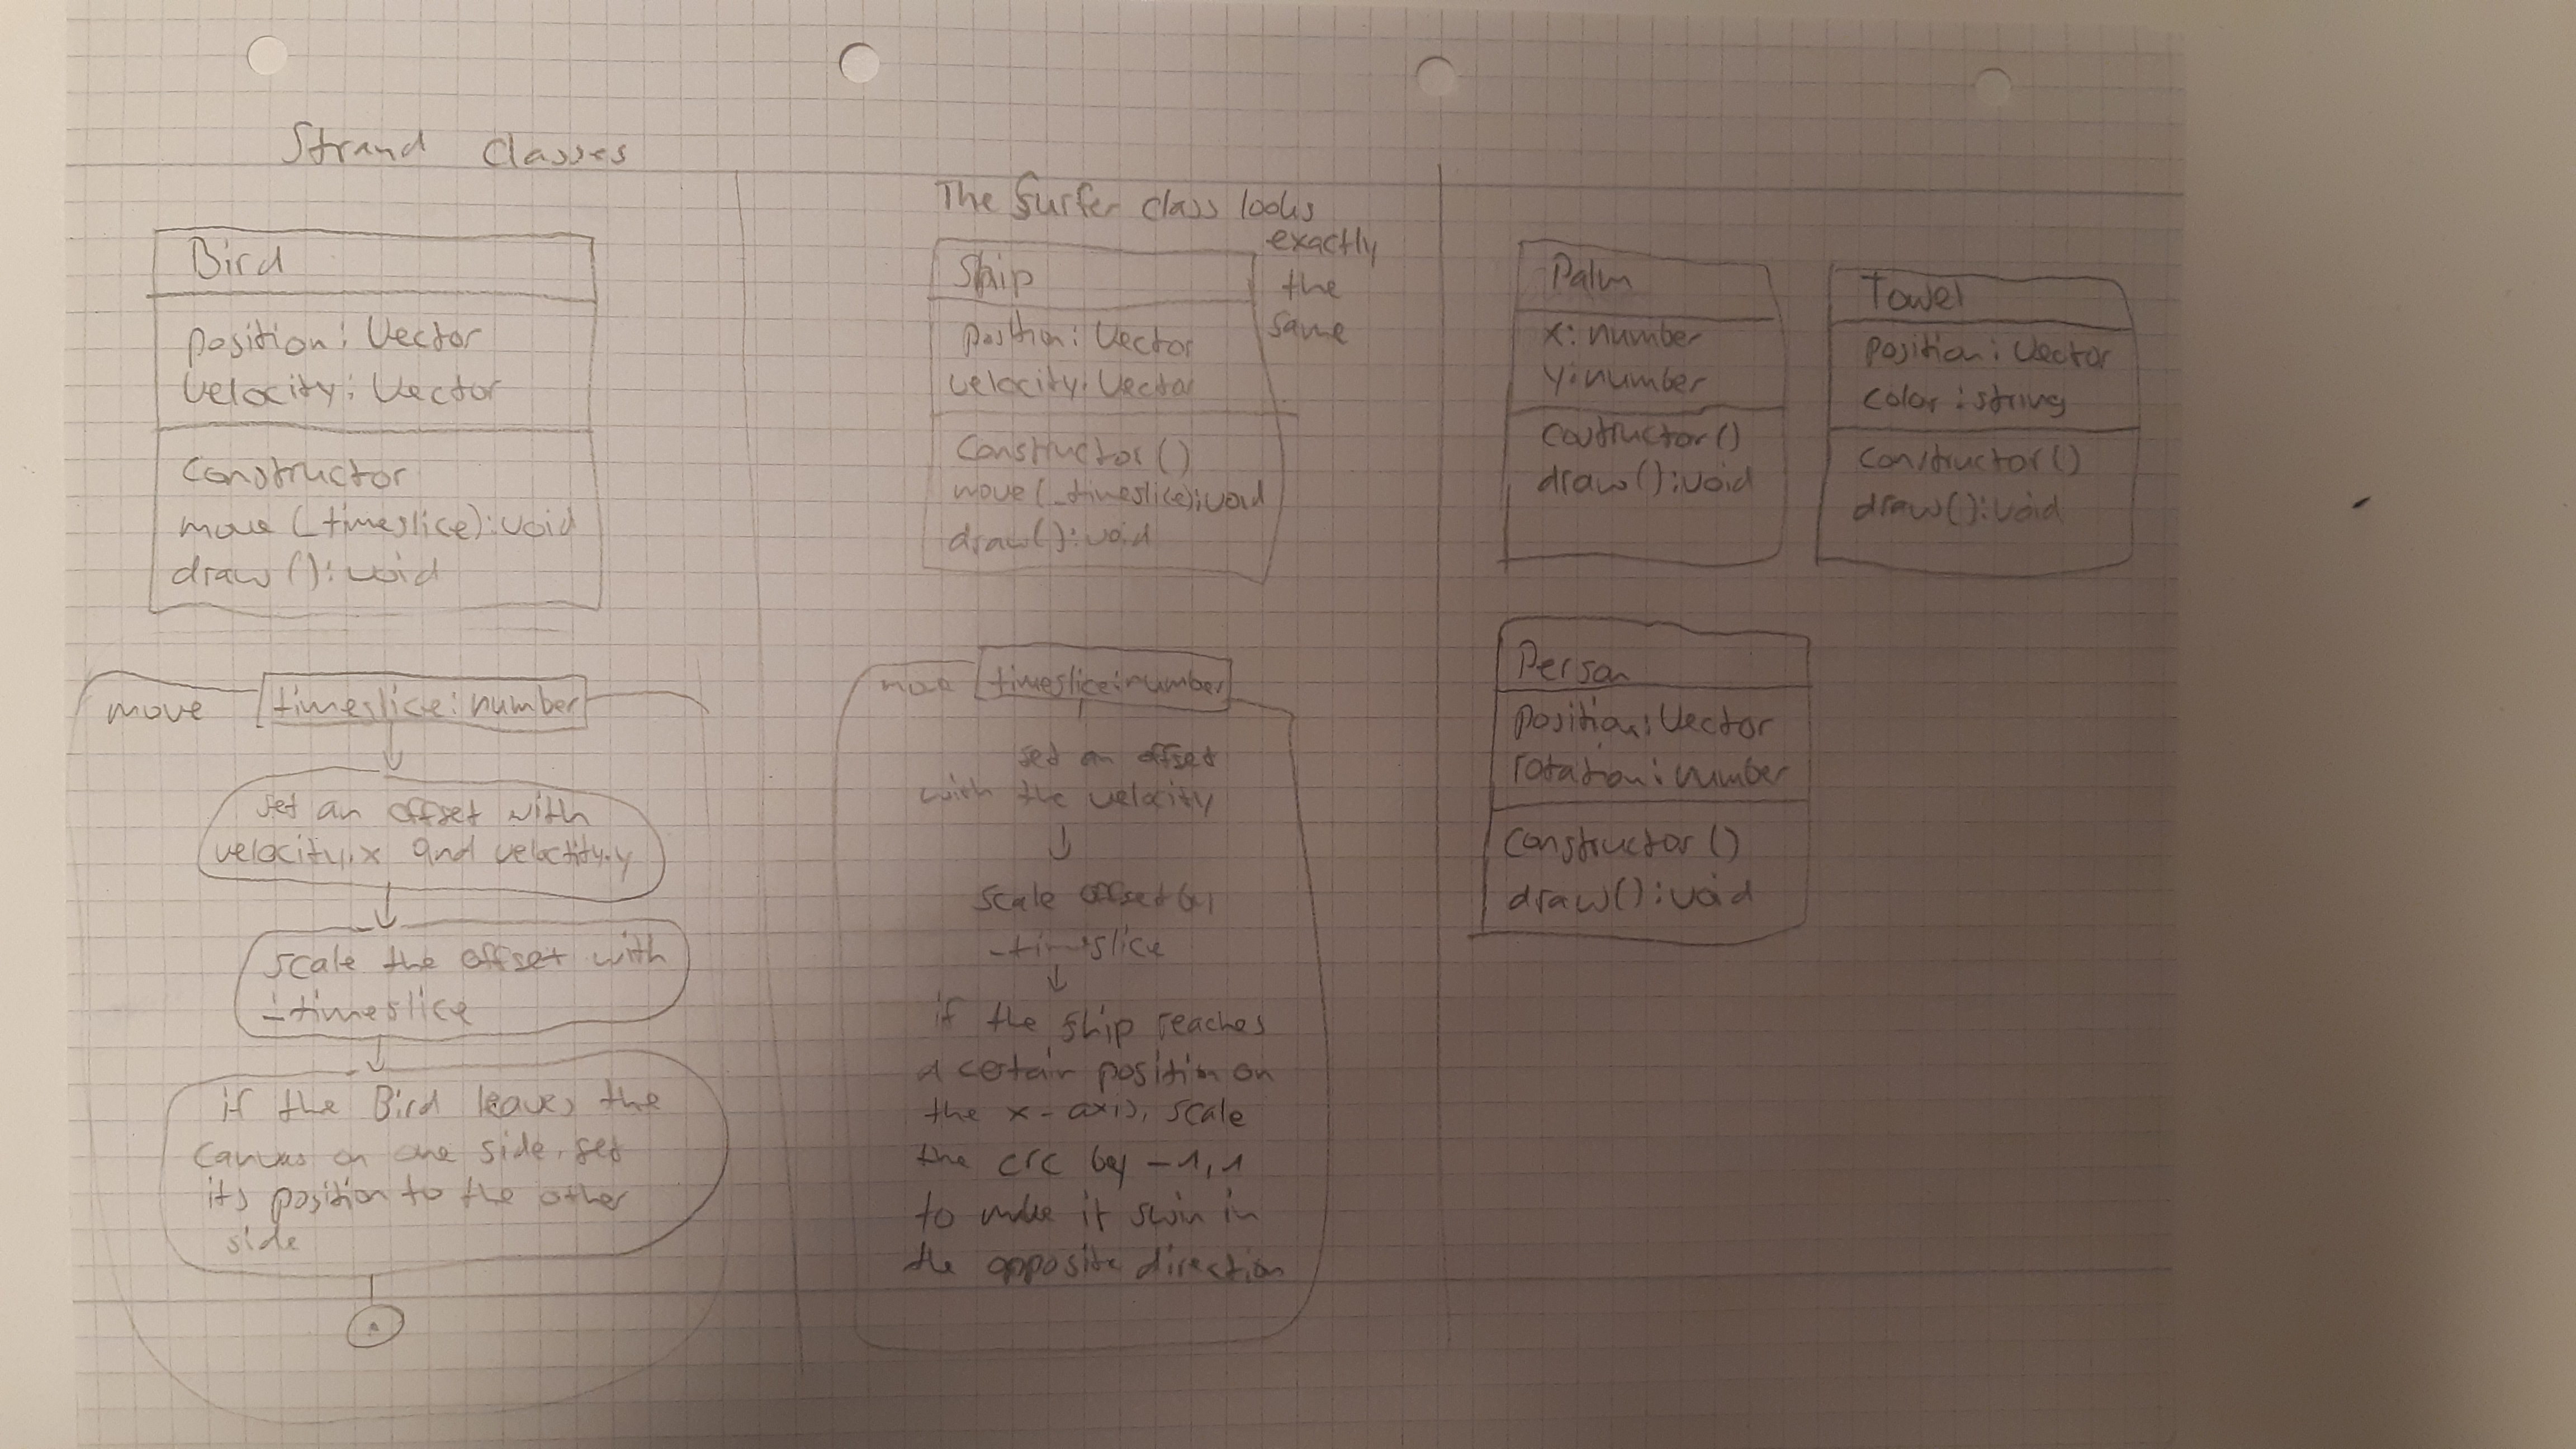 Strand Classes
Bird
position: Vector
velocity: Vector
Constructor
move (_timeslice): void
draw (): void
move timeslice: number
set an offset with
velocity.x and velactity.y
scale the offset with
_timeslice
if the Bird leaves the
canvas on one side, set
its position to the other
side
The Surfer class looks
exactly
the
same
Ship
position: Vector
velocity: Vector
Constructor ()
move (_timeslice): void
draw (): void
move timeslice: number
set an offset
with the velocity
scale offset by
_timeslice
if the ship reaches
a certain position on
the x-axis, scale
the crc by -1,1
to make it swin in
the opposite direction
Palm
x: number
y: number
coutructor ()
draw (): void
Towel
position: Vector
color: string
constructor ()
draw (): void
Person
position: Vector
rotation: number
constructor ()
draw (): void